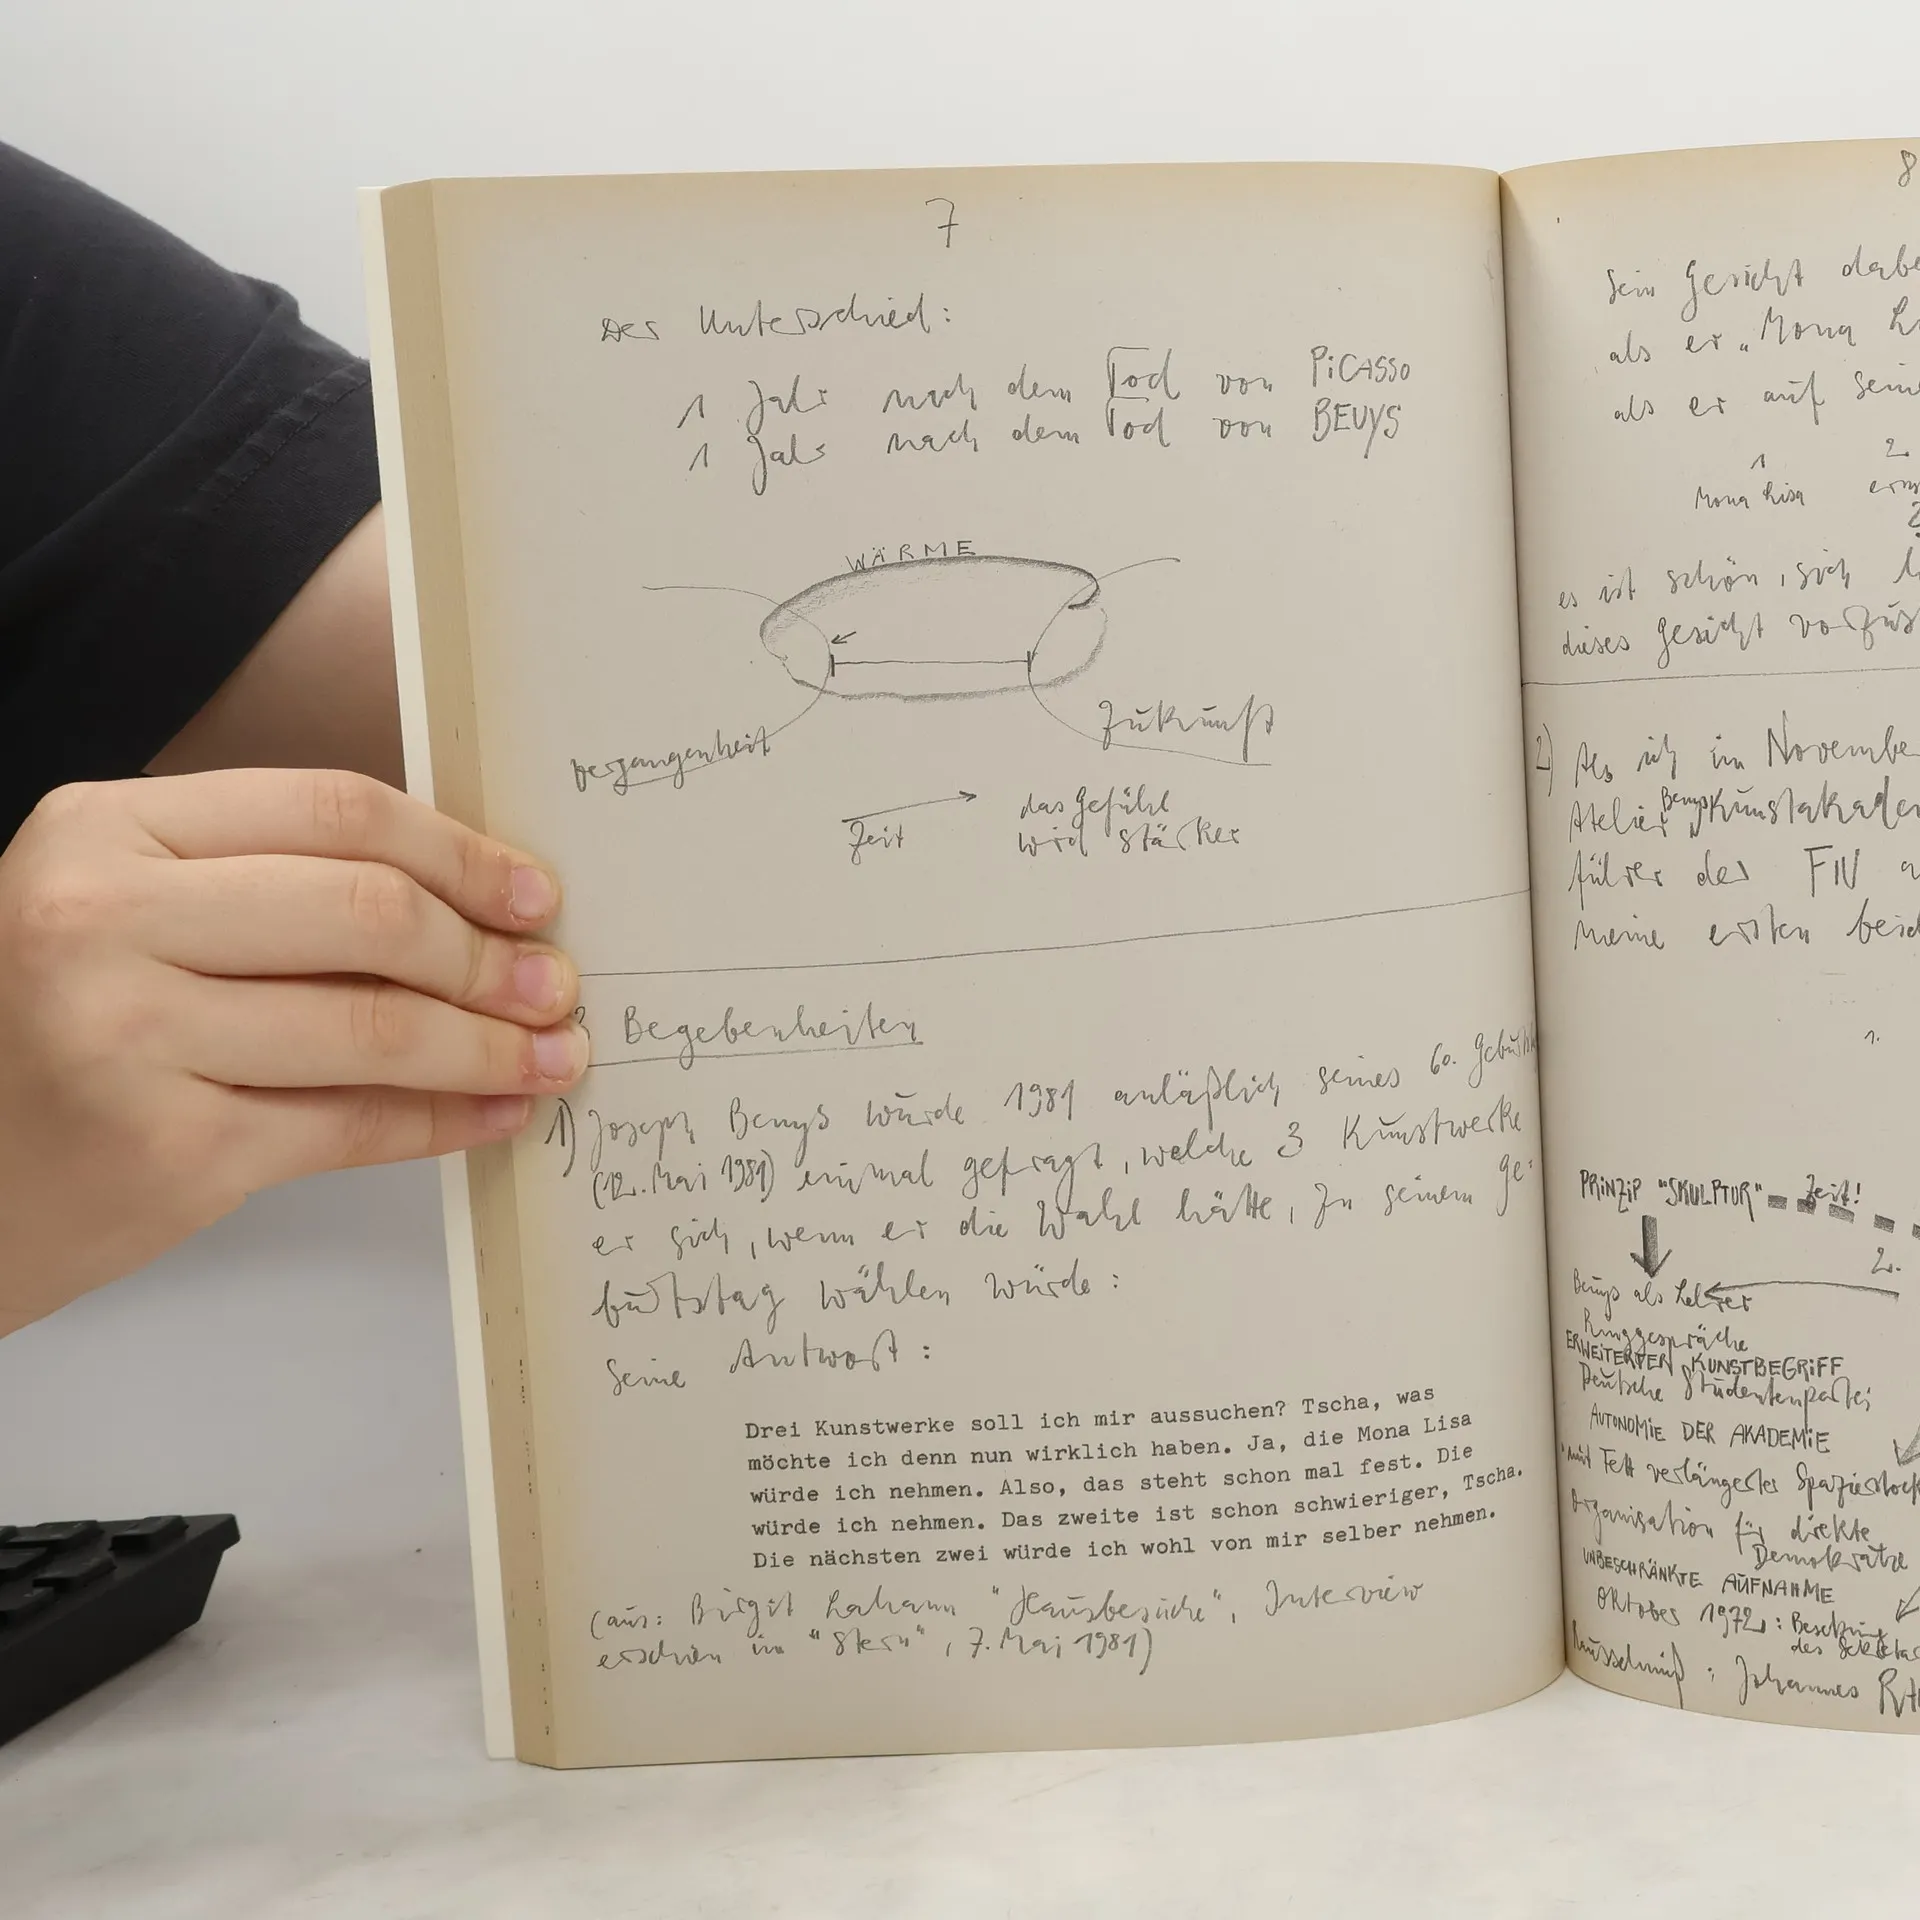 7
Der Unterschied:
1 Jahr nach dem Tod von PiCASSO
1 Jahr nach dem Tod von BEUYS
WÄRME
Vergangenheit
Zukunft
Zeit
das Gefühl
wird stärker
3 Begebenheiten
1) Joseph Beuys wurde 1981 anläßlich seines 60. Geburts
(12. Mai 1981) einmal gefragt, welche 3 Kunstwerke
er sich, wenn er die Wahl hätte, zu seinem Ge=
burtstag wählen würde:
Seine Antwort:
Drei Kunstwerke soll ich mir aussuchen? Tscha, was
möchte ich denn nun wirklich haben. Ja, die Mona Lisa
würde ich nehmen. Also, das steht schon mal fest. Die
würde ich nehmen. Das zweite ist schon schwieriger, Tscha.
Die nächsten zwei würde ich wohl von mir selber nehmen.
(aus: Birgit Lahann "Hausbesuche", Interview
erschien im "Stern", 7. Mai 1981)
8
Sein Gesicht
als er „Mona
als er auf
1
2.
Mona Lisa
es ist schön, sich
dieses Gesicht
2) Als ich im November
Atelier Beuys Kunstakade
führer der FIU
meine ersten
1.
PRiNZiP "SKULPTUR" Zeit!
2.
Beuys als Lehrer
Ringgespräche
ERWEiTERTER KUNSTBEGRiFF
Deutsche Studentenpartei
AUTONOMiE DER AKADEMiE
mit Fett verlängerter Spazierstock
Organisation für direkte
Demokratie
UNBESCHRÄNKTE AUFNAHME
Oktober 1972: Besetzung
des Sekretar
Rausschmiß: Johannes